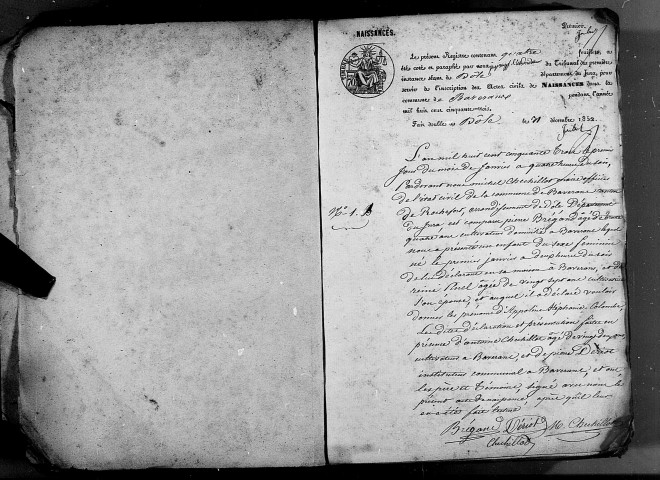 NAISSANCES.
Premier
Le présent Registre contenant quatre feuillets, a
été coté et paraphé par nous
du Tribunal de première
instance séant à Dôle, département du Jura, pour
servir à l'inscription des Actes civils de NAISSANCES dans la
commune de Baverans pendant l'année
mil huit cent cinquante-trois.
Fait double à Dôle le 31 décembre 1852
L'an mil huit cent cinquante trois le premier
jour du mois de janvier a quatre heures du soir,
Pardevant nous michel Chuhillot maire officier
de l'état civil de la commune de Baverans canton
N° 1. B
de Rochefort, arrondissement de Dôle Département
du Jura, est comparu pierre Brégand âgé de trente
quatre ans cultivateur domicilié a Baverans lequel
nous a présenté un enfant du sexe féminin
né le premier janvier a deux heures du soir
de lui déclarant en sa maison à Baverans, et de
reine Ruel âgée de vingt sept ans cultivatrice
son épouse, et auquel il a déclaré vouloir
donner les prénoms d'Appoline Stéphanie Colombe,
Les dites déclaration et présentation faites en
présence d'antoine Chuhillot âgé de vingt
cultivateur a Baverans, et de pierre Dériot
instituteur communal a Baverans, et ont
les père et témoins, signé avec nous le
présent acte de naissance, après qu'il leur
en a été fait lecture
Brégand Dériot M. Chuhillot
Chuhillot